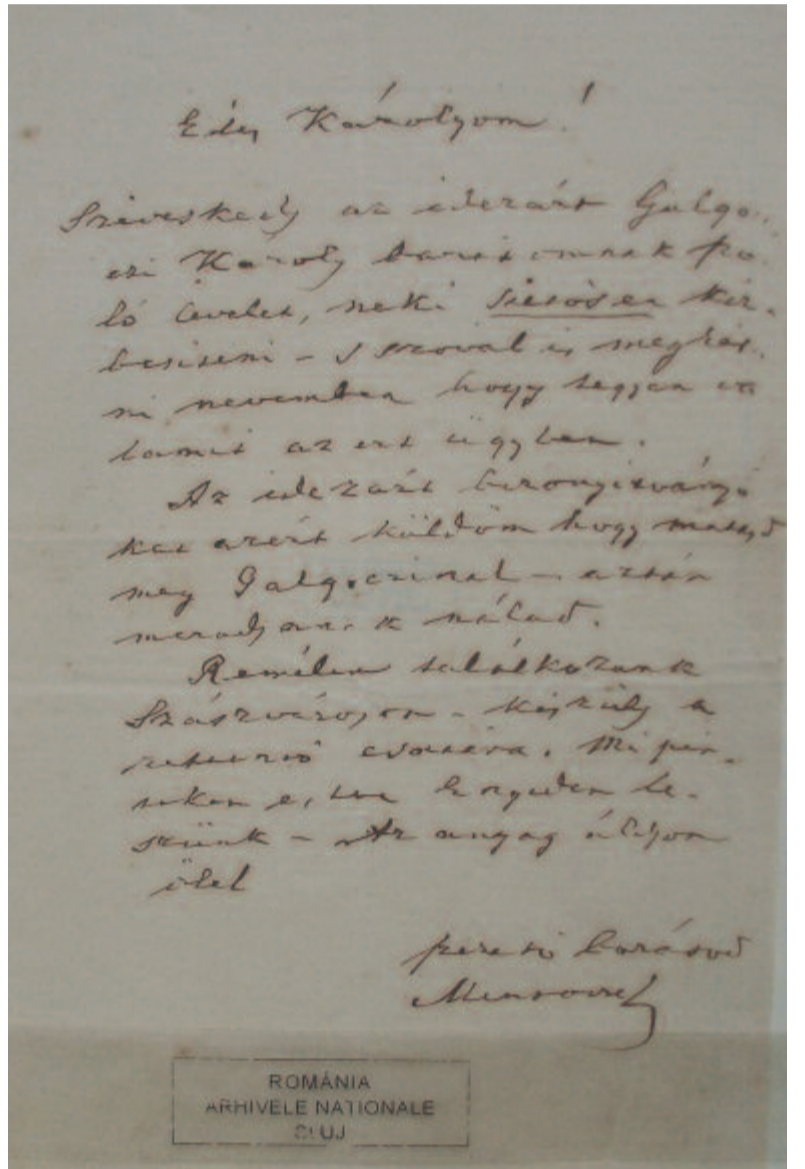 Édes Károlyom!
Szíveskedj az idezárt Galgó-
czi Károly barátomnak szó-
ló levelet, neki sietősen kéz-
besiteni – s szóval is megkér-
ni nevemben hogy tegyen va
lamit az ügyben.
Az idezárt bizonyitványo
kat azért küldöm hogy mutasd
meg Galgoczinal – aztán
maradjanak nálad.
Remélem találkozunk
Szászvároson – készülj a
. Mi pén-
teken este Enyeden le-
szünk – Az anyag
ölel
szerető barátod
ROMÂNIA
ARHIVELE NAȚIONALE
CLUJ